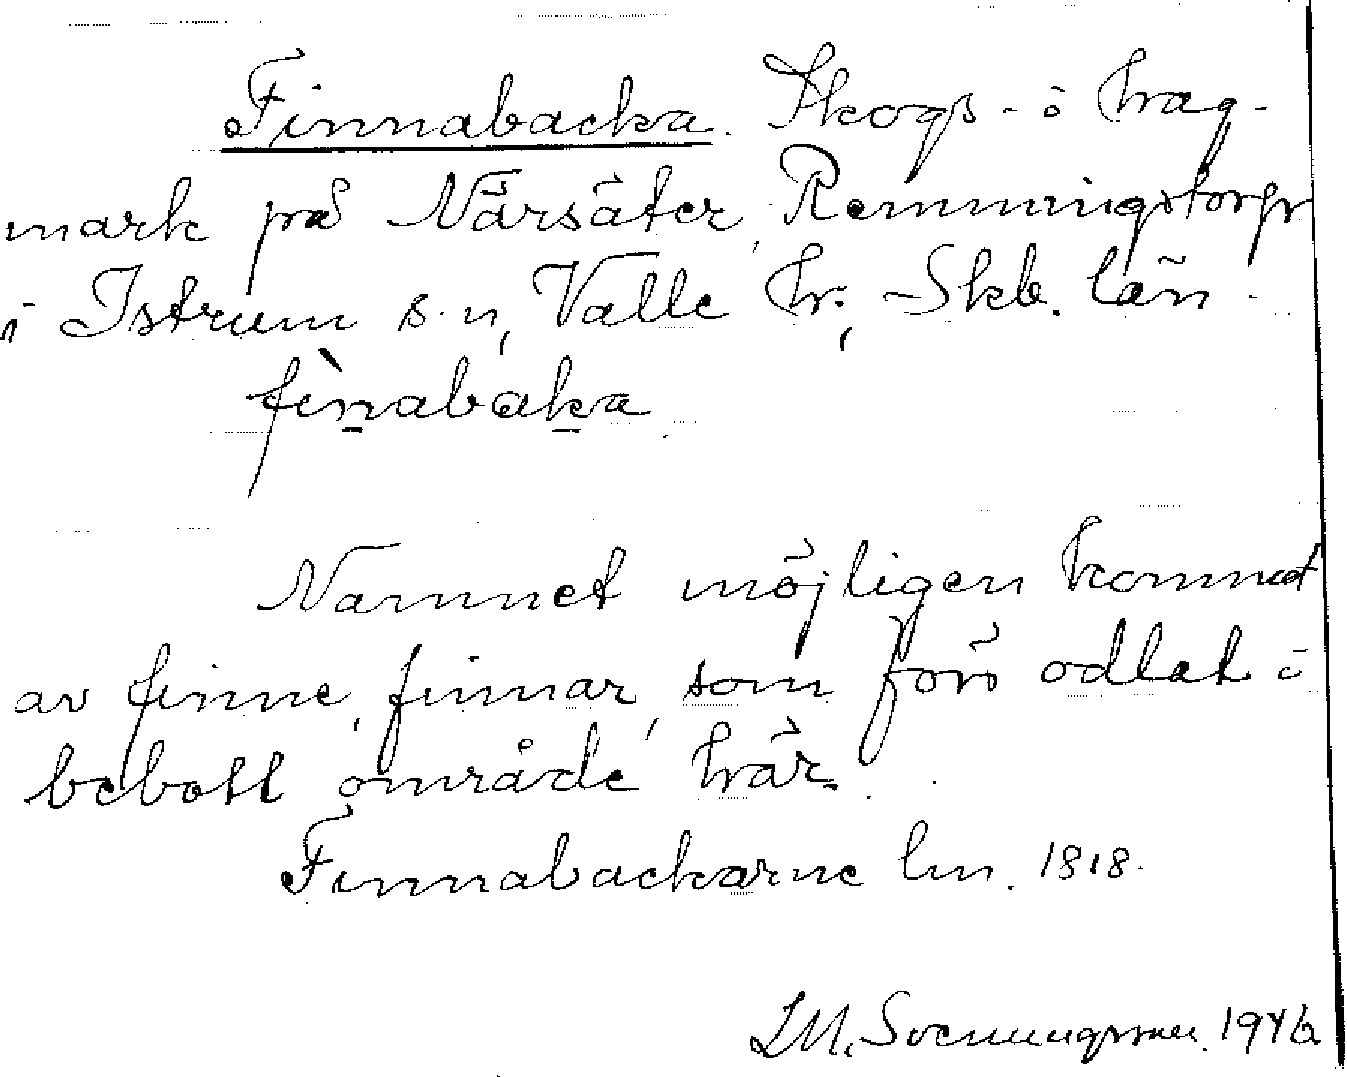 Finnabacka. Skogs- o hag-
mark på Nårsäter, Remmingstorp
i Istrum s.n, Valle hr; Skb. län.
fìn̠abak̠a
Namnet möjligen kommet
av finne, finnar, som förö odlat o
bebott område här.
Finnabackarne lm. 1818.
LM. Svenungsson. 1946